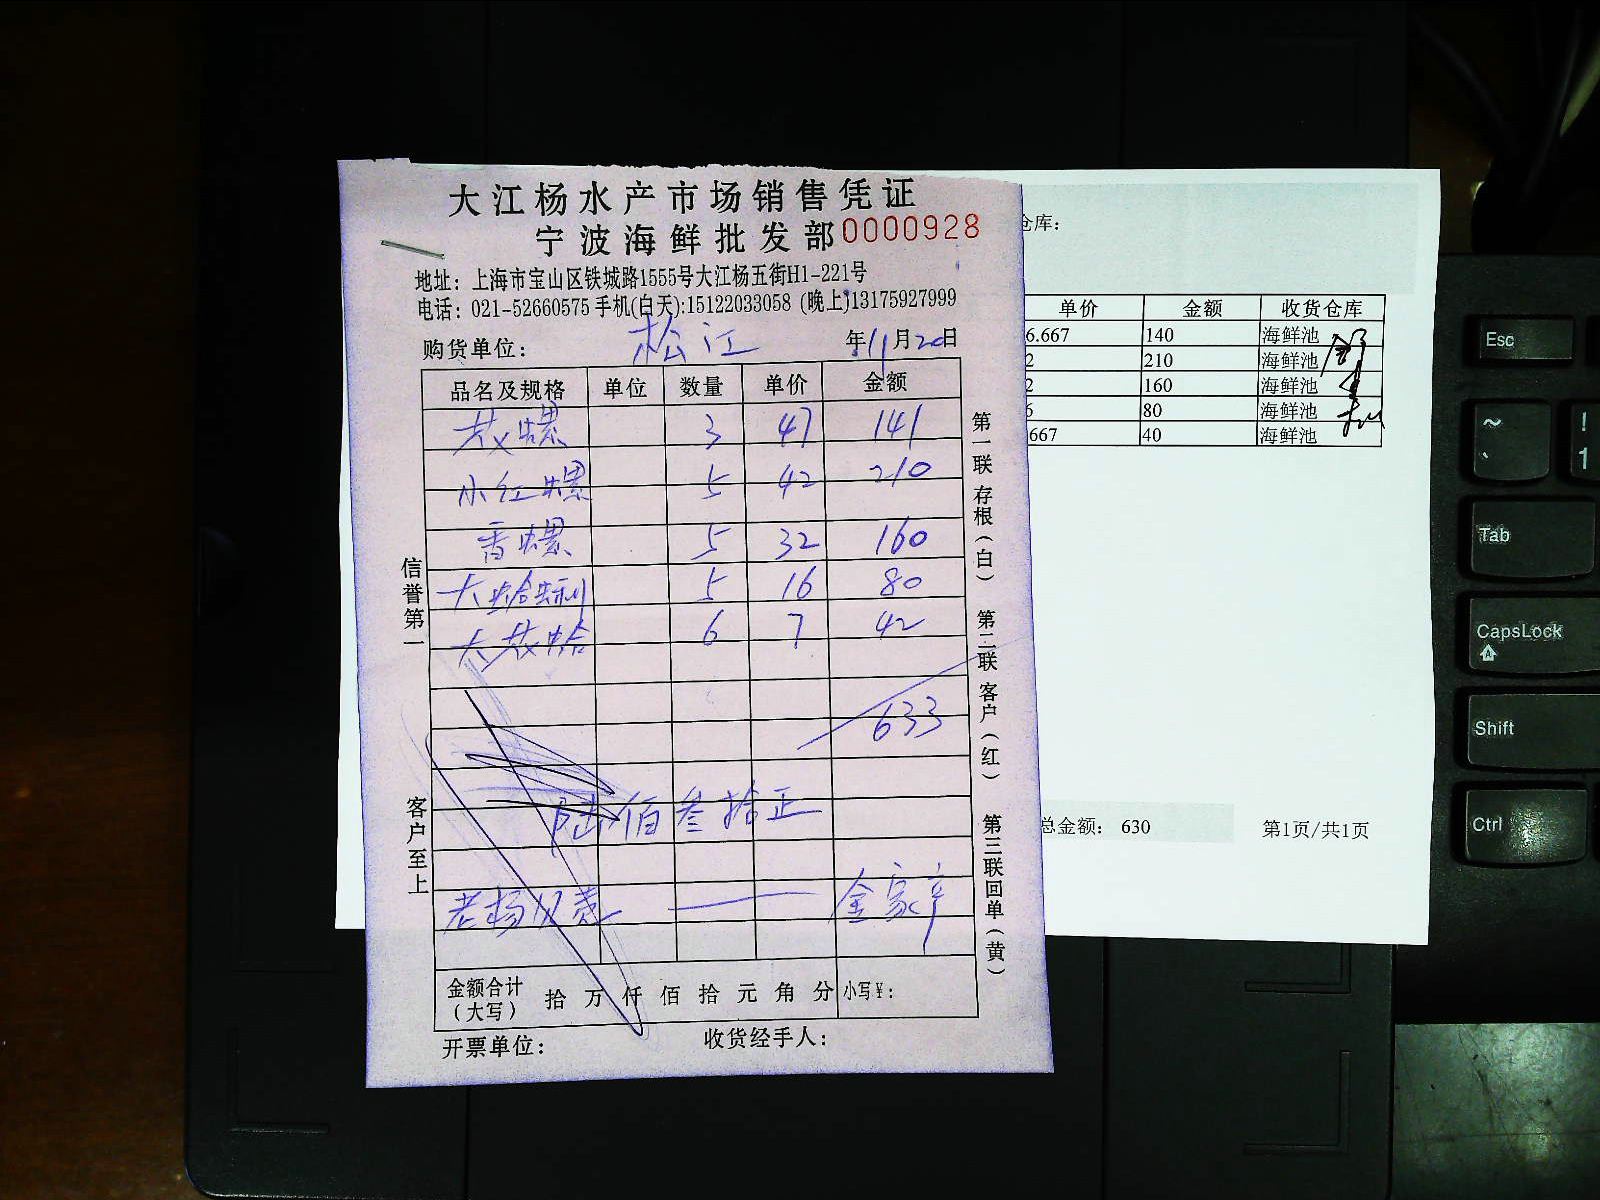 大江杨水产市场销售凭证
宁波海鲜批发部 0000928
地址：上海市宝山区铁城路1555号大江杨五街H1-221号
电话：021-52660575 手机(白天):15122033058 (晚上)13175927999
购货单位：松江 年11月20日
品名及规格 单位 数量 单价 金额
花螺 3 47 141
小红螺 5 42 210
香螺 5 32 160
大蛤蜊 5 16 80
大花蛤 6 7 42
633
陆佰叁拾正
老杨 金家
金额合计（大写） 拾 万 仟 佰 拾 元 角 分 小写¥：
开票单位： 收货经手人：
信誉第一
客户至上
第一联存根（白）
第二联客户（红）
第三联回单（黄）
仓库：
单价 金额 收货仓库
6.667 140 海鲜池
2 210 海鲜池
2 160 海鲜池
6 80 海鲜池
667 40 海鲜池
总金额： 630 第1页/共1页
Esc
~
`
!
1
Tab
CapsLock
A
Shift
Ctrl